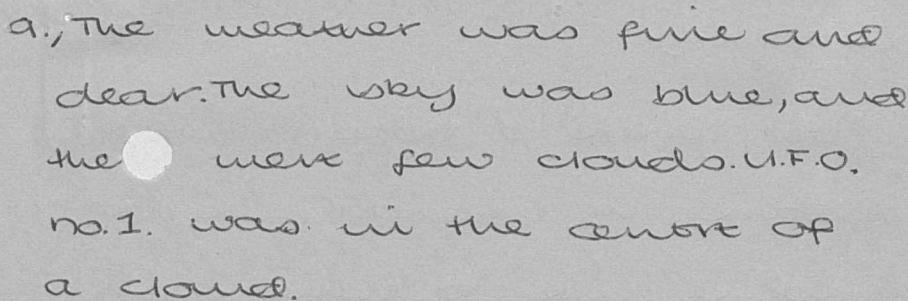 a., The weather was fine and
clear. The sky was blue, and
the were few clouds. U.F.O.
no. 1. was in the centre of
a cloud.